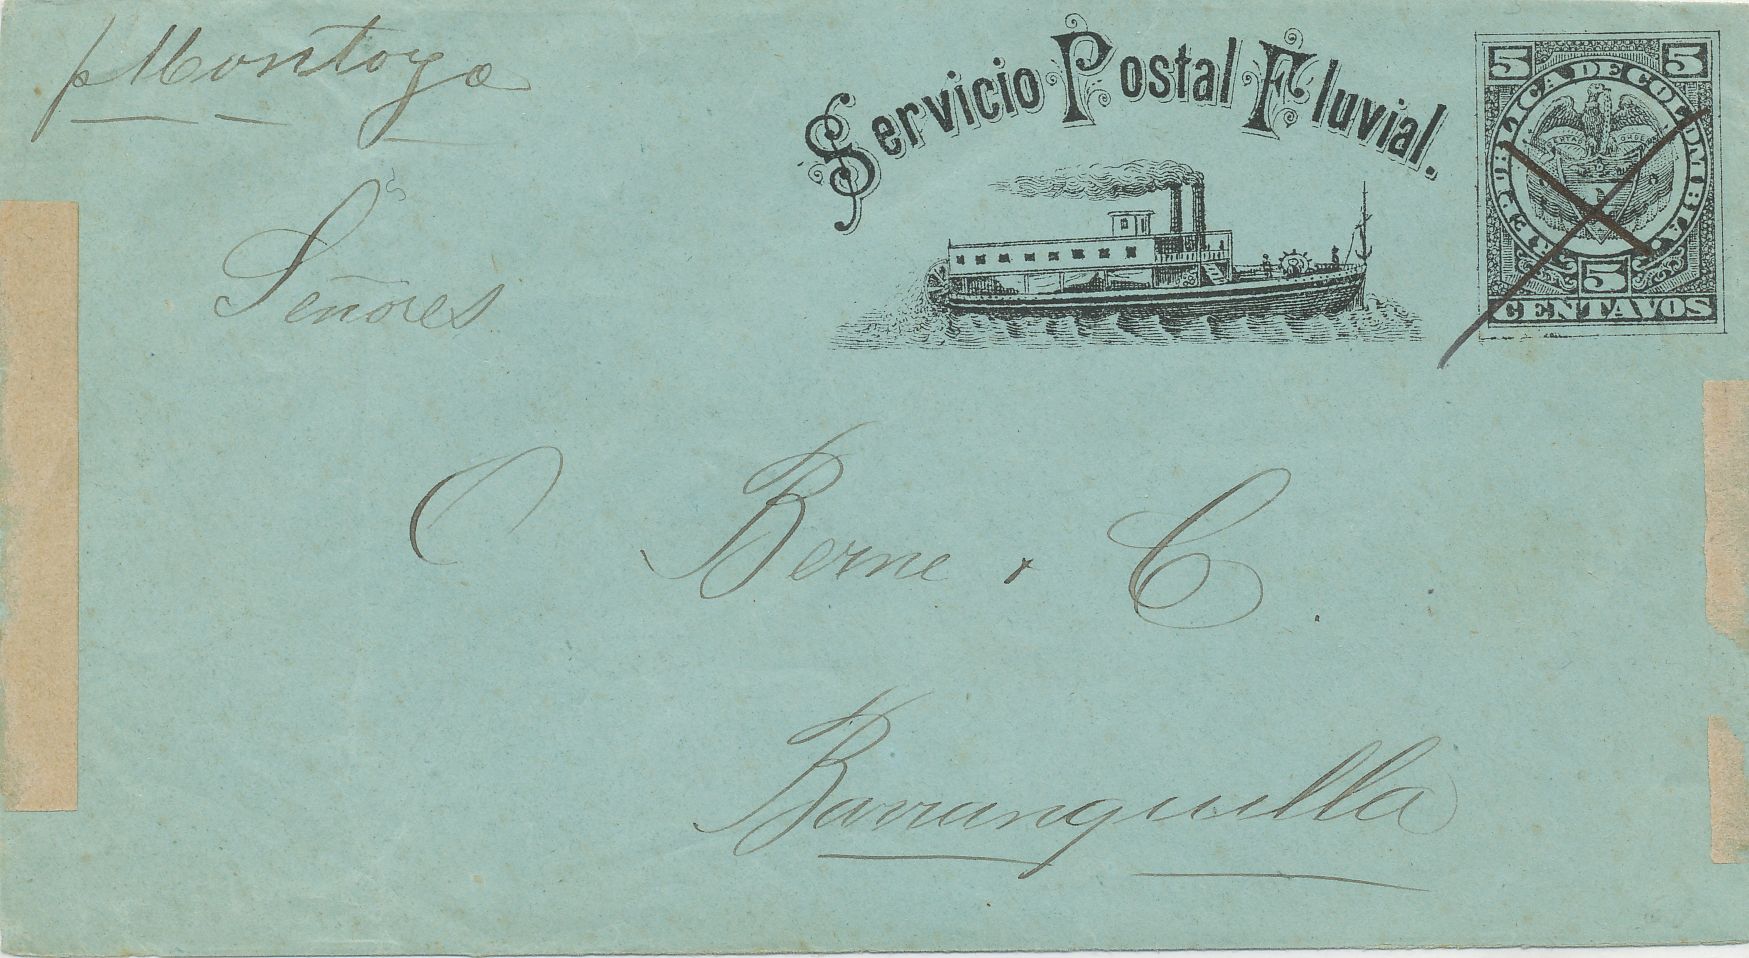 p Montoya
Servicio Postal Fluvial.
5 5
REPUBLICA DE COLOMBIA
5
CENTAVOS
Señores
O Berne & C.
Barranquilla